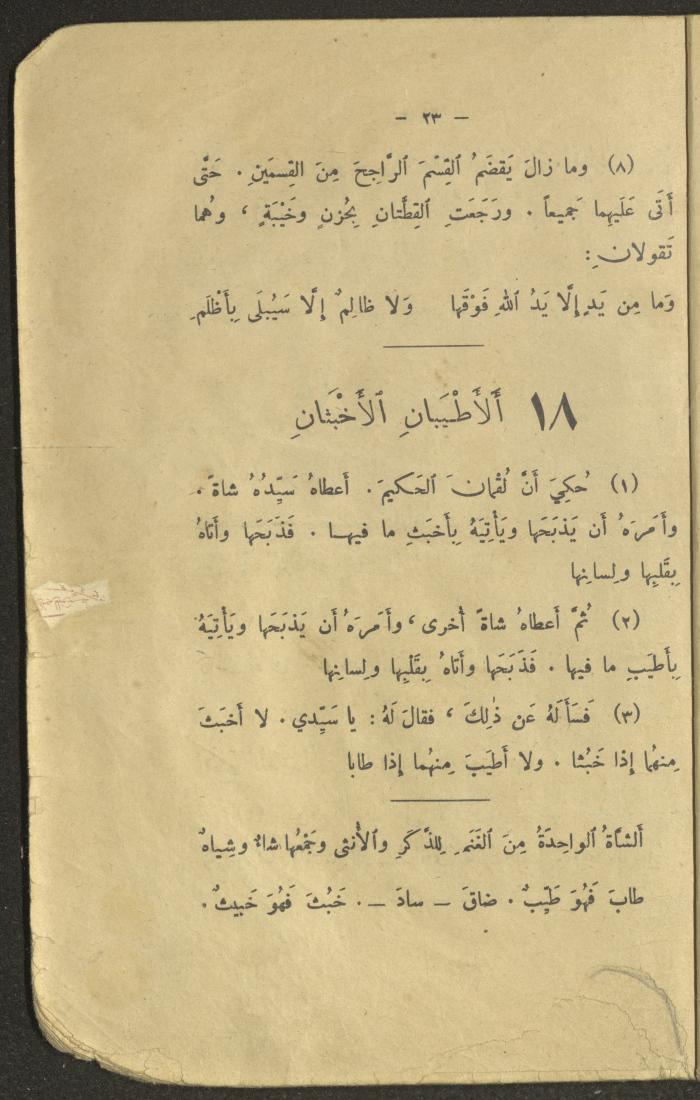 - ٢٣ -
(٨) وما زالَ يَقضَمُ ٱلقِسْمَ ٱلرَّاجِحَ مِنَ القِسمَينِ . حَتَّى
أَتَى عَلَيهِما جَميعاً . ورَجَعَتِ ٱلقِطَّتانِ بِحُزنٍ وخَيْبَةٍ ، وهُما
تَقولانِ :
وَما مِن يَدٍ إِلَّا يَدُ ٱللهِ فَوْقَها وَلا ظالِمٌ إِلَّا سَيُبلَى بِأَظْلَمِ
١٨ أَلأَطْيَبانِ ٱلأَخْبَثانِ
(١) حُكِيَ أَنَّ لُقْمانَ ٱلحَكيمَ . أَعطاهُ سَيِّدُهُ شاةً .
وأَمَرَهُ أَن يَذبَحَها ويَأْتِيَهُ بِأَخبَثِ ما فيها . فَذَبَحَها وأَتاهُ
بِقَلبِها ولِسانِها
(٢) ثُمَّ أَعطاهُ شاةً أُخرى ، وأَمَرَهُ أَن يَذْبَحَها ويَأْتِيَهُ
بِأَطيَبِ ما فيها . فَذَبَحَها وأَتاهُ بِقَلْبِها ولِسانِها
(٣) فَسَأَلَهُ عَن ذٰلِكَ ، فقالَ لَهُ : يا سَيِّدي . لا أَخبَثَ
مِنهُما إِذا خَبُثا . ولا أَطيَبَ مِنهُما إِذا طابا
أَلشاةُ ٱلواحِدَةُ مِنَ ٱلغَنَمِ لِلذَّكَرِ وٱلأُنثى وجَمْعُها شاءٌ وشِياهٌ
طابَ فَهُوَ طَيِّبٌ . ضاقَ ــ سادَ ــ . خَبُثَ فَهُوَ خَبيثٌ .